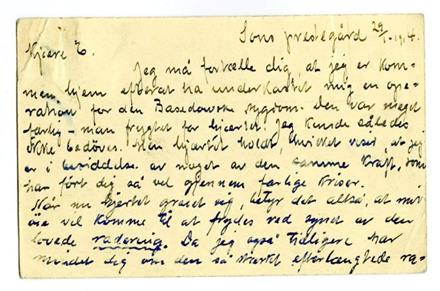 Sons prestegård 29/1-1914.
Kjære E.
Jeg må fortælle dig, at jeg er kom-
men hjem efterat ha underkastet mig en ope-
ration for den Basedowske sygdom. Den var meget
farlig – man frygtet for hjertet. Jeg kunde således
ikke bedøves. Men hjertet holdt at jeg
er i besiddelse av noget av den samme kraft, som
har ført dig så vel gjennem farlige kriser.
Når nu hjertet greiet sig, betyr det altså, at mit
øie vil komme til at frydes ved synet av den
lovede radering. Da jeg også tidligere har
mindet dig om den så stærkt efterlængtede ra-